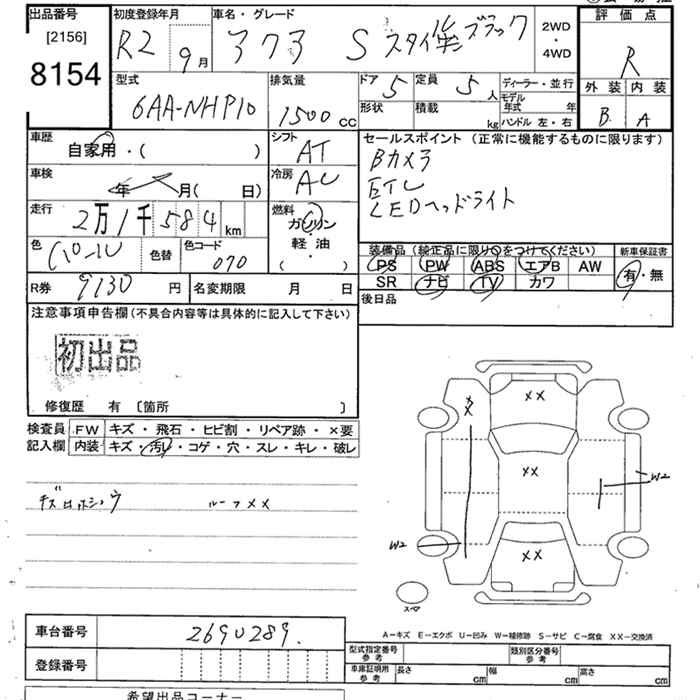 出品番号 初度登録年月 車名・グレード 2WD・4WD 評価点
[2156] R2 9月 アクア S スタイルブラック R
8154
型式 排気量 ドア 5 定員 5人 ディーラー・並行 外装 内装
6AA-NHP10 1500cc 形状 積載 kg モデル年式 年 B A
ハンドル 左・右
車歴 シフト セールスポイント (正常に機能するものに限ります)
自家用・( ) AT Bカメラ
車検 冷房 ETC
年 月( 日) AC LEDヘッドライト
走行 燃料
2万1千584km ガソリン
色 色替 色コード 軽油 装備品 (純正品に限り○をつけてください) 新車保証書
パール 070 ・( ) PS PW ABS エアB AW 有・無
R券 9130円 名変期限 月 日 SR ナビ TV カワ
注意事項申告欄(不具合内容等は具体的に記入して下さい) 後日品
初出品
修復歴 有 〔箇所 〕
検査員 FW キズ・飛石・ヒビ割・リペア跡・×要
記入欄 内装 キズ・汚れ・コゲ・穴・スレ・キレ・破レ
ルーフXX
XX
XX
W2
W2
XX
スペア
A−キズ E−エクボ U−凹み W−補修跡 S−サビ C−腐食 XX−交換済
車台番号 2690289. 型式指定番号 参考 類別区分番号 参考
登録番号 車庫証明用 参考 長さ cm 幅 cm 高さ cm
希望出品コーナー